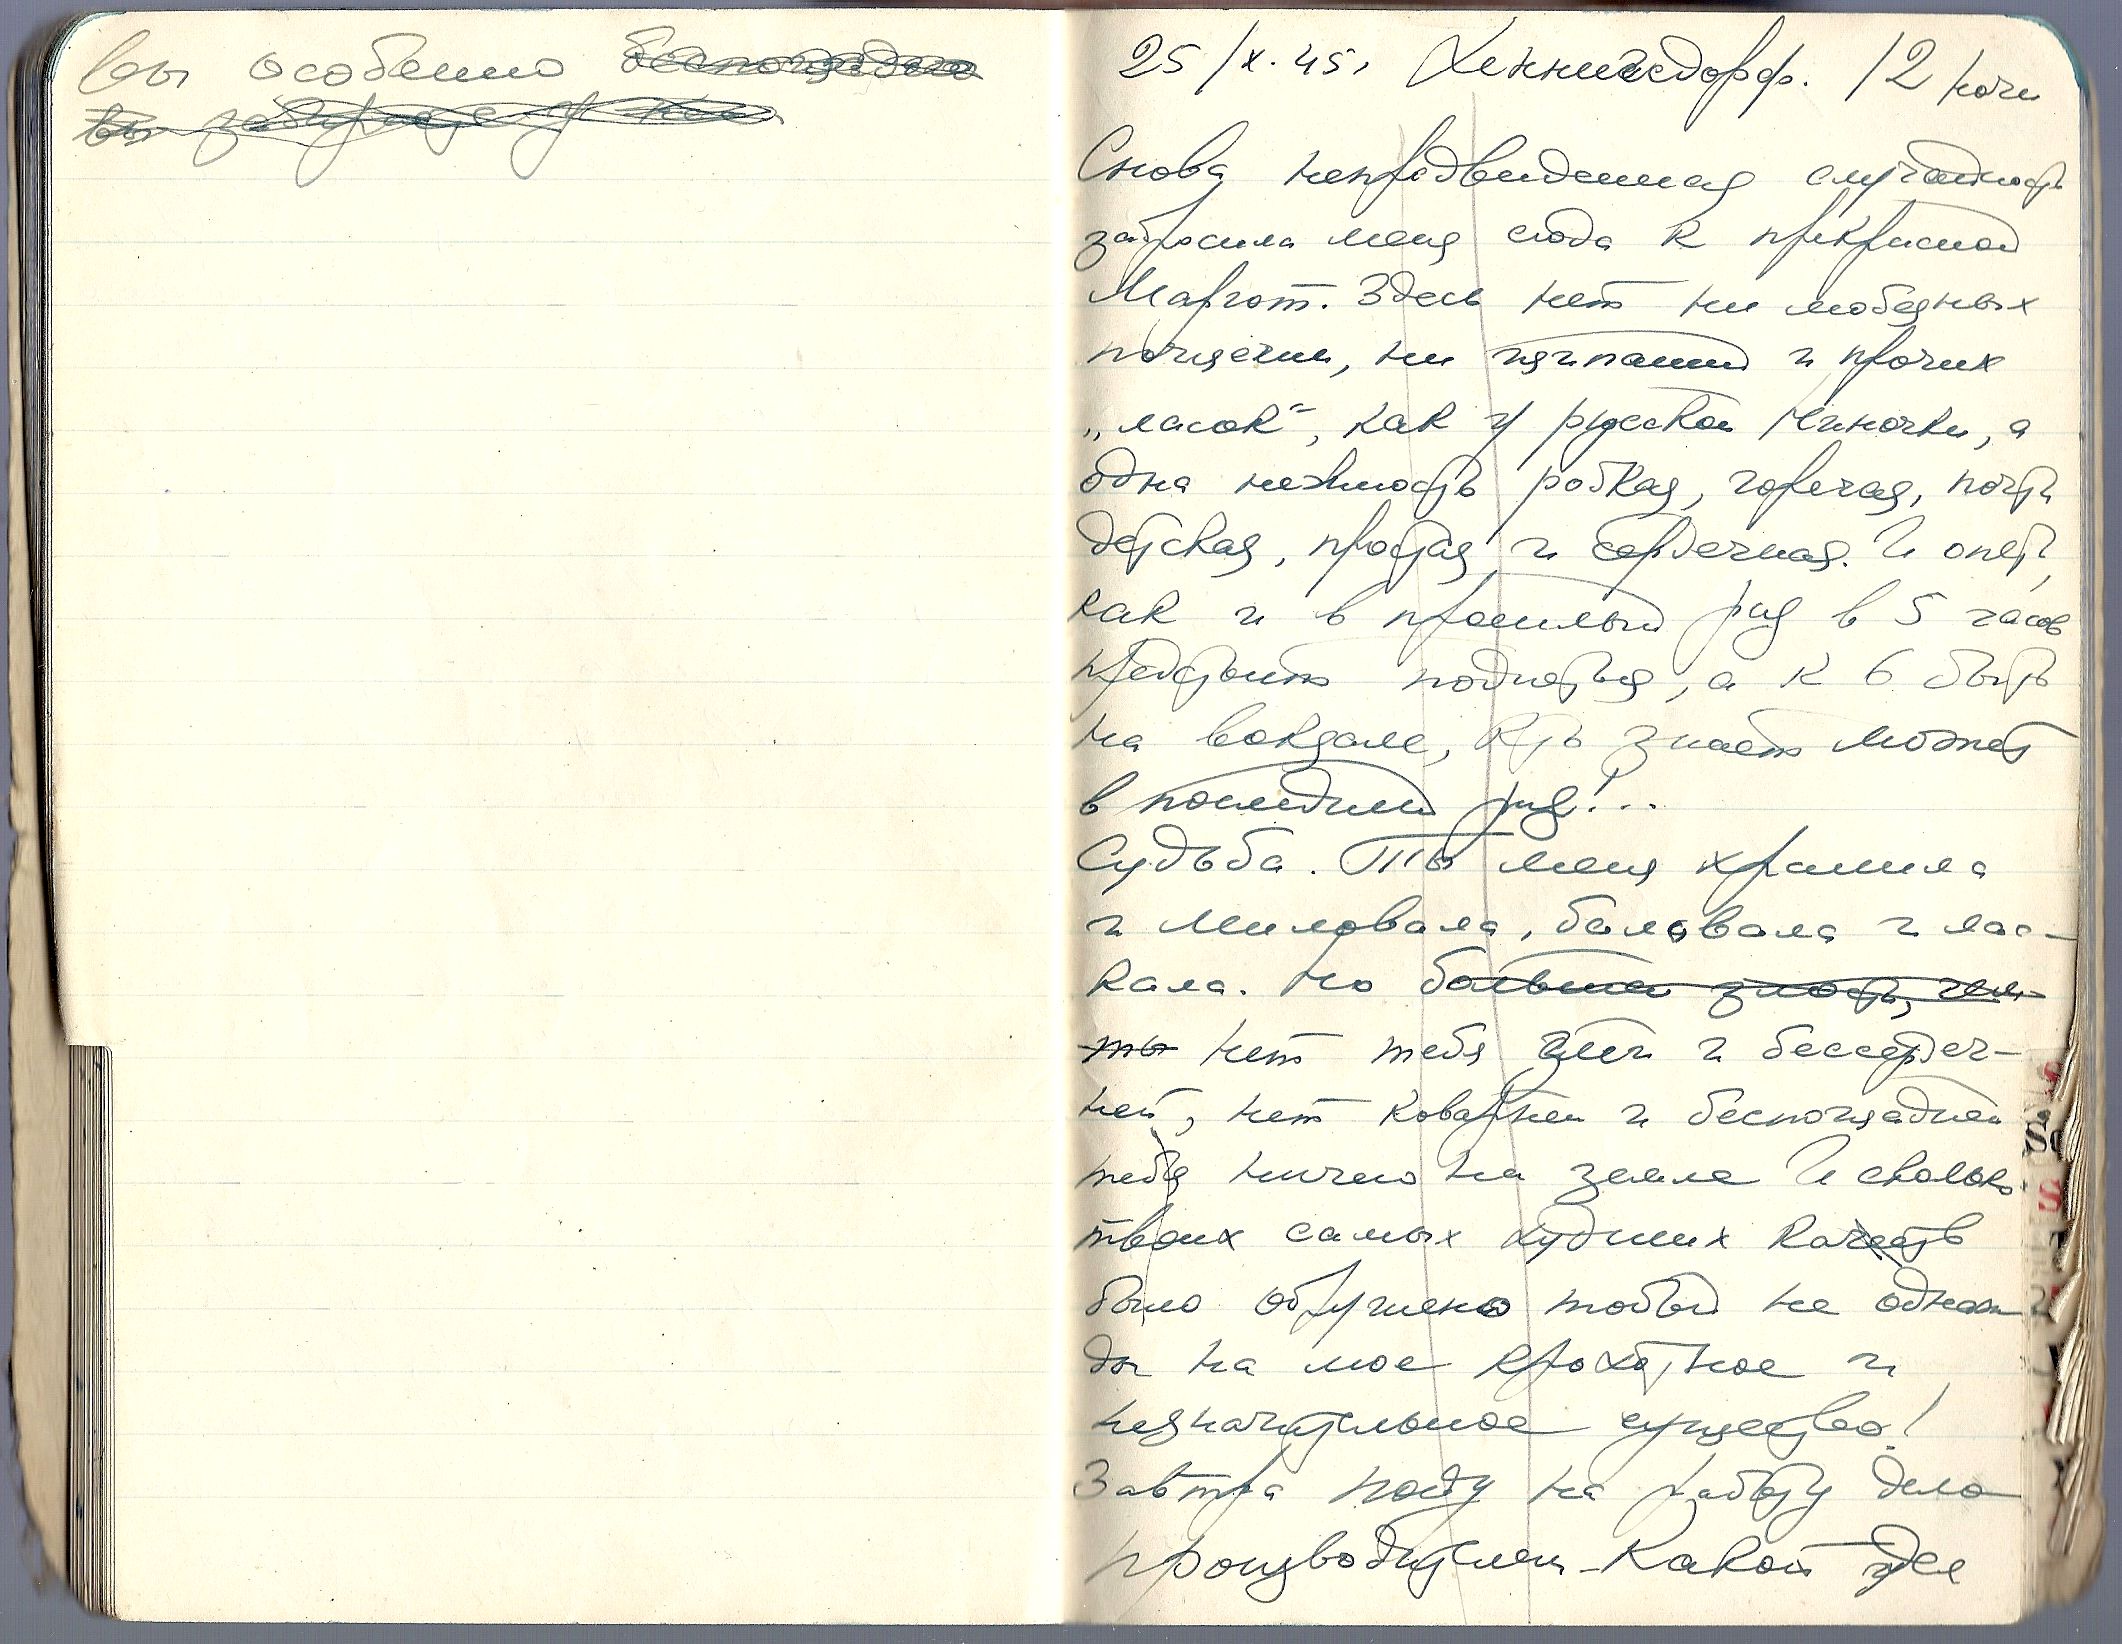 вы особенно беспощадно
вы
25/X.45. Хеннигсдорф. 12 ночи
Снова непредвиденная случайность
забросила меня сюда к прекрасной
Маргот. Здесь нет ни любезных
пощечин, ни и прочих
„ласок“, как у русской Ниночки, а
одна нежность робкая, горячая, почти
детская, простая и сердечная. И опять,
как и в прошлый раз в 5 часов
предстоит подняться, а к 6 быть
на вокзале, кто знает может
в последний раз!..
Судьба. Ты меня хранила
и миловала, баловала и лас-
кала. Но больше злость, чем
ты нет тебя злей и бессердеч-
ней, нет коварней и беспощадней
тебя ничего на земле И сколько
твоих самых худших качеств
было обрушено тобой не однаж
ды на мое крохотное и
незначительное существо!
Завтра пойду на работу дело
производителем. Какой